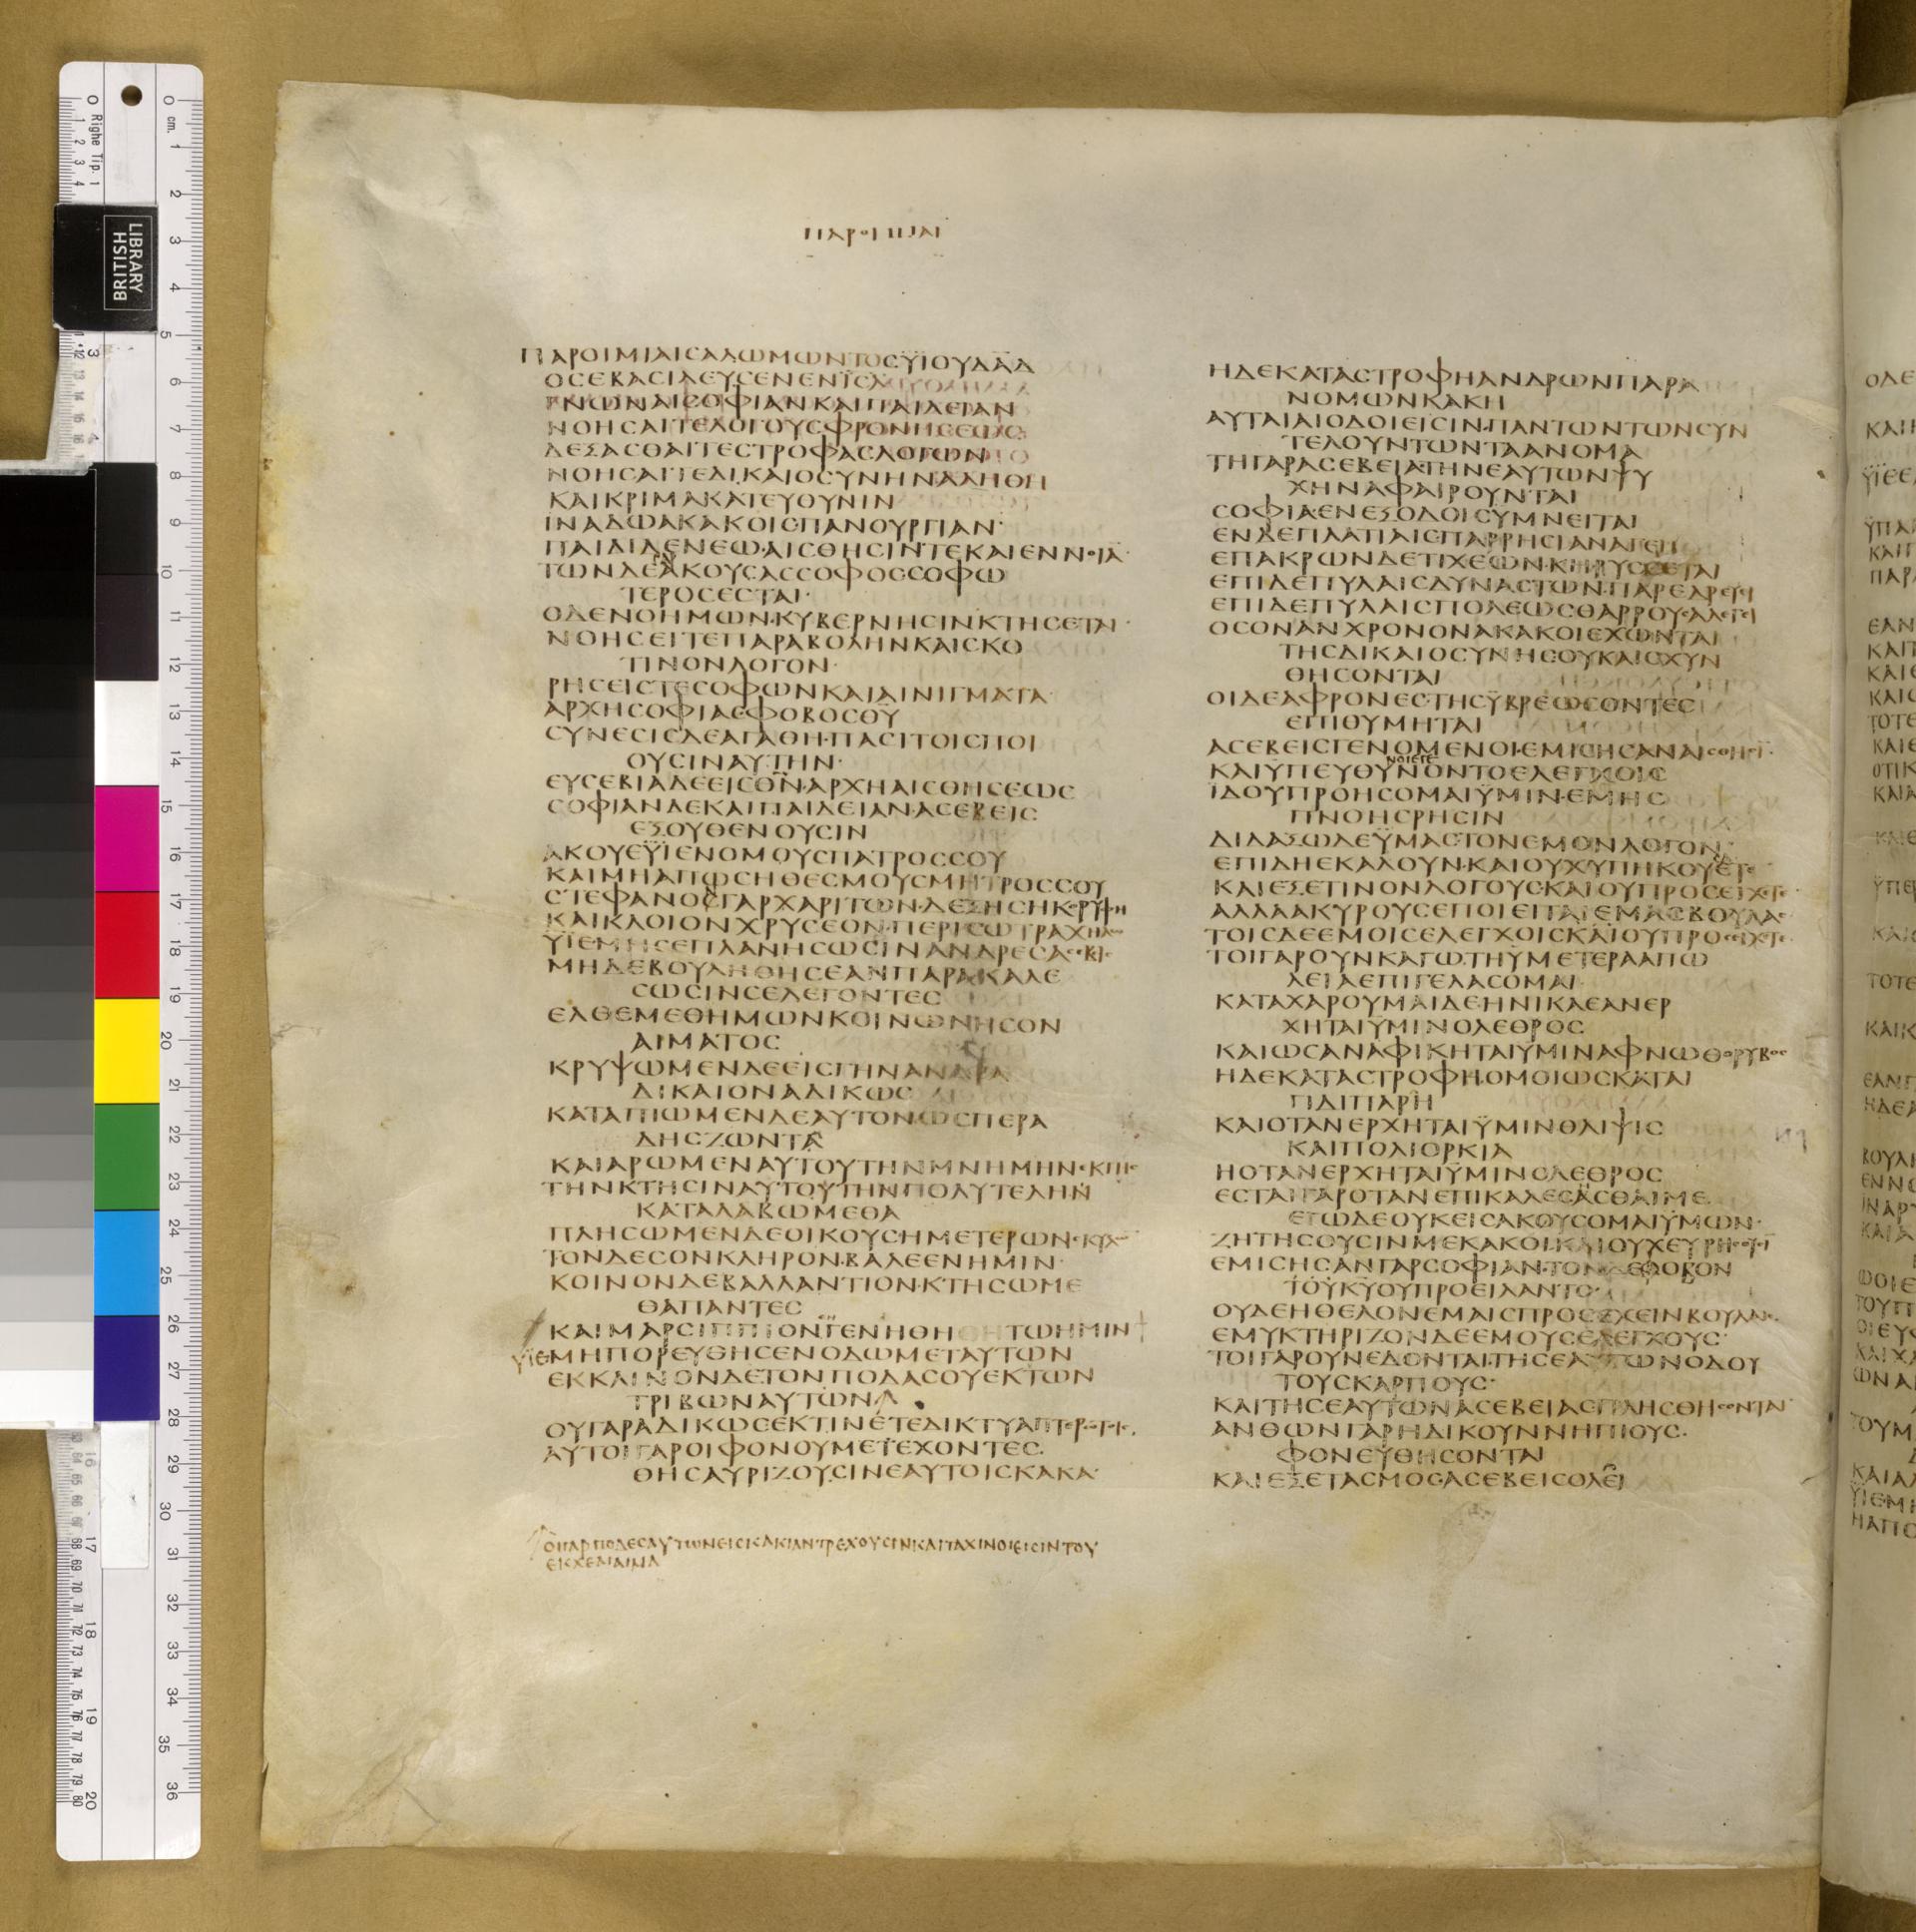 ΠΑΡΟΙΜΙΑΙ
ΠΑΡΟΙΜΙΑΙCΑΛΩΜΩΝΤΟCΫΙΟΥΔΑΔ
ΟCΕΒΑCΙΛΕΥCΕΝΕΝ
ΓΝΩΝΑΙCΟΦΙΑΝΚΑΙΠΑΙΔΕΙΑΝ
ΝΟΗCΑΙΤΕΛΟΓΟΥCΦΡΟΝΗCΕΩC
ΔΕΞΑCΘΑΙΤΕCΤΡΟΦΑCΛΟΓΩΝ
ΝΟΗCΑΙΤΕΔΙΚΑΙΟCΥΝΗΝΑΛΗΘΗ
ΚΑΙΚΡΙΜΑΚΑΤΕΥΘΥΝΙΝ
ΙΝΑΔΩΑΚΑΚΟΙCΠΑΝΟΥΡΓΙΑΝ
ΠΑΙΔΙΔΕΝΕΩΑΙCΘΗCΙΝΤΕΚΑΙΕΝΝΟΙΑ
ΤΩΝΔΕΑΚΟΥCΑCCΟΦΟCCΟΦΩ
ΤΕΡΟCΕCΤΑΙ
ΟΔΕΝΟΗΜΩΝΚΥΒΕΡΝΗCΙΝΚΤΗCΕΤΑΙ
ΝΟΗCΕΙΤΕΠΑΡΑΒΟΛΗΝΚΑΙCΚΟ
ΤΙΝΟΝΛΟΓΟΝ
ΡΗCΕΙCΤΕCΟΦΩΝΚΑΙΑΙΝΙΓΜΑΤΑ
ΑΡΧΗCΟΦΙΑCΦΟΒΟCΘΥ
CΥΝΕCΙCΔΕΑΓΑΘΗΠΑCΙΤΟΙCΠΟΙ
ΟΥCΙΝΑΥΤΗΝ
ΕΥCΕΒΙΑΔΕΕΙCΘΝΑΡΧΗΑΙCΘΗCΕΩC
CΟΦΙΑΝΔΕΚΑΙΠΑΙΔΕΙΑΝΑCΕΒΕΙC
ΕΞΟΥΘΕΝΟΥCΙΝ
ΑΚΟΥΕΫΙΕΝΟΜΟΥCΠΑΤΡΟCCΟΥ
ΚΑΙΜΗΑΠΩCΗΘΕCΜΟΥCΜΗΤΡΟCCΟΥ
CΤΕΦΑΝΟΝΓΑΡΧΑΡΙΤΩΝΔΕΞΗCΗΚΟΡΥΦΗ
ΚΑΙΚΛΟΙΟΝΧΡΥCΕΟΝΠΕΡΙCΩΤΡΑΧΗΛΩ
ΫΙΕΜΗCΕΠΛΑΝΗCΩCΙΝΑΝΔΡΕCΑCΕΒΙC
ΜΗΔΕΒΟΥΛΗΘΗCΕΑΝΠΑΡΑΚΑΛΕ
CΩCΙΝCΕΛΕΓΟΝΤΕC
ΕΛΘΕΜΕΘΗΜΩΝΚΟΙΝΩΝΗCΟΝ
ΑΙΜΑΤΟC
ΚΡΥΨΩΜΕΝΔΕΕΙCΓΗΝΑΝΔΡΑ
ΔΙΚΑΙΟΝΑΔΙΚΩC
ΚΑΤΑΠΙΩΜΕΝΔΕΑΥΤΟΝΩCΠΕΡΑ
ΔΗCΖΩΝΤΑ
ΚΑΙΑΡΩΜΕΝΑΥΤΟΥΤΗΝΜΝΗΜΗΝΕΚΓΗC
ΤΗΝΚΤΗCΙΝΑΥΤΟΥΤΗΝΠΟΛΥΤΕΛΗΝ
ΚΑΤΑΛΑΒΩΜΕΘΑ
ΠΛΗCΩΜΕΝΔΕΟΙΚΟΥCΗΜΕΤΕΡΩΝCΚΥΛΩ
ΤΟΝΔΕCΟΝΚΛΗΡΟΝΒΑΛΕΕΝΗΜΙΝ
ΚΟΙΝΟΝΔΕΒΑΛΛΑΝΤΙΟΝΚΤΗCΩΜΕ
ΘΑΠΑΝΤΕC
ΚΑΙΜΑΡCΙΠΠΙΟΝΓΕΝΗΘΗΤΩΗΜΙΝ
ΫΙΕΜΗΠΟΡΕΥΘΗCΕΝΟΔΩΜΕΤΑΥΤΩΝ
ΕΚΚΛΙΝΟΝΔΕΤΟΝΠΟΔΑCΟΥΕΚΤΩΝ
ΤΡΙΒΩΝΑΥΤΩΝ
ΟΥΓΑΡΑΔΙΚΩCΕΚΤΙΝΕΤΕΔΙΚΤΥΑΠΤΕΡΩΤΟΙC
ΑΥΤΟΙΓΑΡΟΙΦΟΝΟΥΜΕΤΕΧΟΝΤΕC
ΘΗCΑΥΡΙΖΟΥCΙΝΕΑΥΤΟΙCΚΑΚΑ
ΟΙΓΑΡΠΟΔΕCΑΥΤΩΝΕΙCΚΑΚΙΑΝΤΡΕΧΟΥCΙΝΚΑΙΤΑΧΙΝΟΙΕΙCΙΝΤΟΥ
ΕΚΧΕΑΙΑΙΜΑ
ΗΔΕΚΑΤΑCΤΡΟΦΗΑΝΔΡΩΝΠΑΡΑ
ΝΟΜΩΝΚΑΚΗ
ΑΥΤΑΙΑΙΟΔΟΙΕΙCΙΝΠΑΝΤΩΝΤΩΝCΥΝ
ΤΕΛΟΥΝΤΩΝΤΑΑΝΟΜΑ
ΤΗΓΑΡΑCΕΒΕΙΑΤΗΝΕΑΥΤΩΝΨΥ
ΧΗΝΑΦΑΙΡΟΥΝΤΑΙ
CΟΦΙΑΕΝΕΞΟΔΟΙCΥΜΝΕΙΤΑΙ
ΕΝΔΕΠΛΑΤΙΑΙCΠΑΡΡΗCΙΑΝΑΓΕΙ
ΕΠΑΚΡΩΝΔΕΤΙΧΕΩΝΚΗΡΥCCΕΤΑΙ
ΕΠΙΔΕΠΥΛΑΙCΔΥΝΑCΤΩΝΠΑΡΕΔΡΕΥΕΙ
ΕΠΙΔΕΠΥΛΑΙCΠΟΛΕΩCΘΑΡΡΟΥCΑΛΕΓΕΙ
ΟCΟΝΑΝΧΡΟΝΟΝΑΚΑΚΟΙΕΧΩΝΤΑΙ
ΤΗCΔΙΚΑΙΟCΥΝΗCΟΥΚΑΙCΧΥΝ
ΘΗCΟΝΤΑΙ
ΟΙΔΕΑΦΡΟΝΕCΤΗCΫΒΡΕΩCΟΝΤΕC
ΕΠΙΘΥΜΗΤΑΙ
ΑCΕΒΕΙCΓΕΝΟΜΕΝΟΙΕΜΙCΗCΑΝΑΙCΘΗCΙ
ΚΑΙΫΠΕΥΘΥΝΟΝΤΟΕΛΕΓΧΟΙC
ΪΔΟΥΠΡΟΗCΟΜΑΙΫΜΙΝΕΜΗC
ΠΝΟΗCΡΗCΙΝ
ΔΙΔΑΞΩΔΕΫΜΑCΤΟΝΕΜΟΝΛΟΓΟΝ
ΕΠΙΔΗΕΚΑΛΟΥΝΚΑΙΟΥΧΥΠΗΚΟΥCΑΤΕ
ΚΑΙΕΞΕΤΙΝΟΝΛΟΓΟΥCΚΑΙΟΥΠΡΟCΕΙΧΕΤΕ
ΑΛΛΑΑΚΥΡΟΥCΕΠΟΙΕΙΤΑΙΕΜΑCΒΟΥΛΑC
ΤΟΙCΔΕΕΜΟΙCΕΛΕΓΧΟΙCΚΑΙΟΥΠΡΟCΕΙΧΕΤΕ
ΤΟΙΓΑΡΟΥΝΚΑΓΩΤΗΫΜΕΤΕΡΑΑΠΩ
ΛΕΙΑΕΠΙΓΕΛΑCΟΜΑΙ
ΚΑΤΑΧΑΡΟΥΜΑΙΔΕΗΝΙΚΑΕΑΝΕΡ
ΧΗΤΑΙΫΜΙΝΟΛΕΘΡΟC
ΚΑΙΩCΑΝΑΦΙΚΗΤΑΙΫΜΙΝΑΦΝΩΘΟΡΥΒΟC
ΗΔΕΚΑΤΑCΤΡΟΦΗΟΜΟΙΩCΚΑΤΑΙ
ΓΙΔΙΠΑΡΗ
ΚΑΙΟΤΑΝΕΡΧΗΤΑΙΫΜΙΝΘΛΙΨΙC
ΚΑΙΠΟΛΙΟΡΚΙΑ
ΗΟΤΑΝΕΡΧΗΤΑΙΫΜΙΝΟΛΕΘΡΟC
ΕCΤΑΙΓΑΡΟΤΑΝΕΠΙΚΑΛΕCΑCΘΑΙΜΕ
ΕΓΩΔΕΟΥΚΕΙCΑΚΟΥCΟΜΑΙΫΜΩΝ
ΖΗΤΗCΟΥCΙΝΜΕΚΑΚΟΙΚΑΙΟΥΧΕΥΡΗCΟΥCΙ
ΕΜΙCΗCΑΝΓΑΡCΟΦΙΑΝΤΟΝΔΕΦΟΒΟΝ
ΤΟΥΚΥΟΥΠΡΟΕΙΛΑΝΤΟ
ΟΥΔΕΗΘΕΛΟΝΕΜΑΙCΠΡΟCΕΧΕΙΝΒΟΥΛΑΙC
ΕΜΥΚΤΗΡΙΖΟΝΔΕΕΜΟΥCΕΛΕΓΧΟΥC
ΤΟΙΓΑΡΟΥΝΕΔΟΝΤΑΙΤΗCΕΑΥΤΩΝΟΔΟΥ
ΤΟΥCΚΑΡΠΟΥC
ΚΑΙΤΗCΕΑΥΤΩΝΑCΕΒΕΙΑCΠΛΗCΘΗCΟΝΤΑΙ
ΑΝΘΩΝΓΑΡΗΔΙΚΟΥΝΝΗΠΙΟΥC
ΦΟΝΕΥΘΗCΟΝΤΑΙ
ΚΑΙΕΞΕΤΑCΜΟCΑCΕΒΕΙCΟΛΕΙ
BRITISH
LIBRARY
Righe Tip. 1
cm.